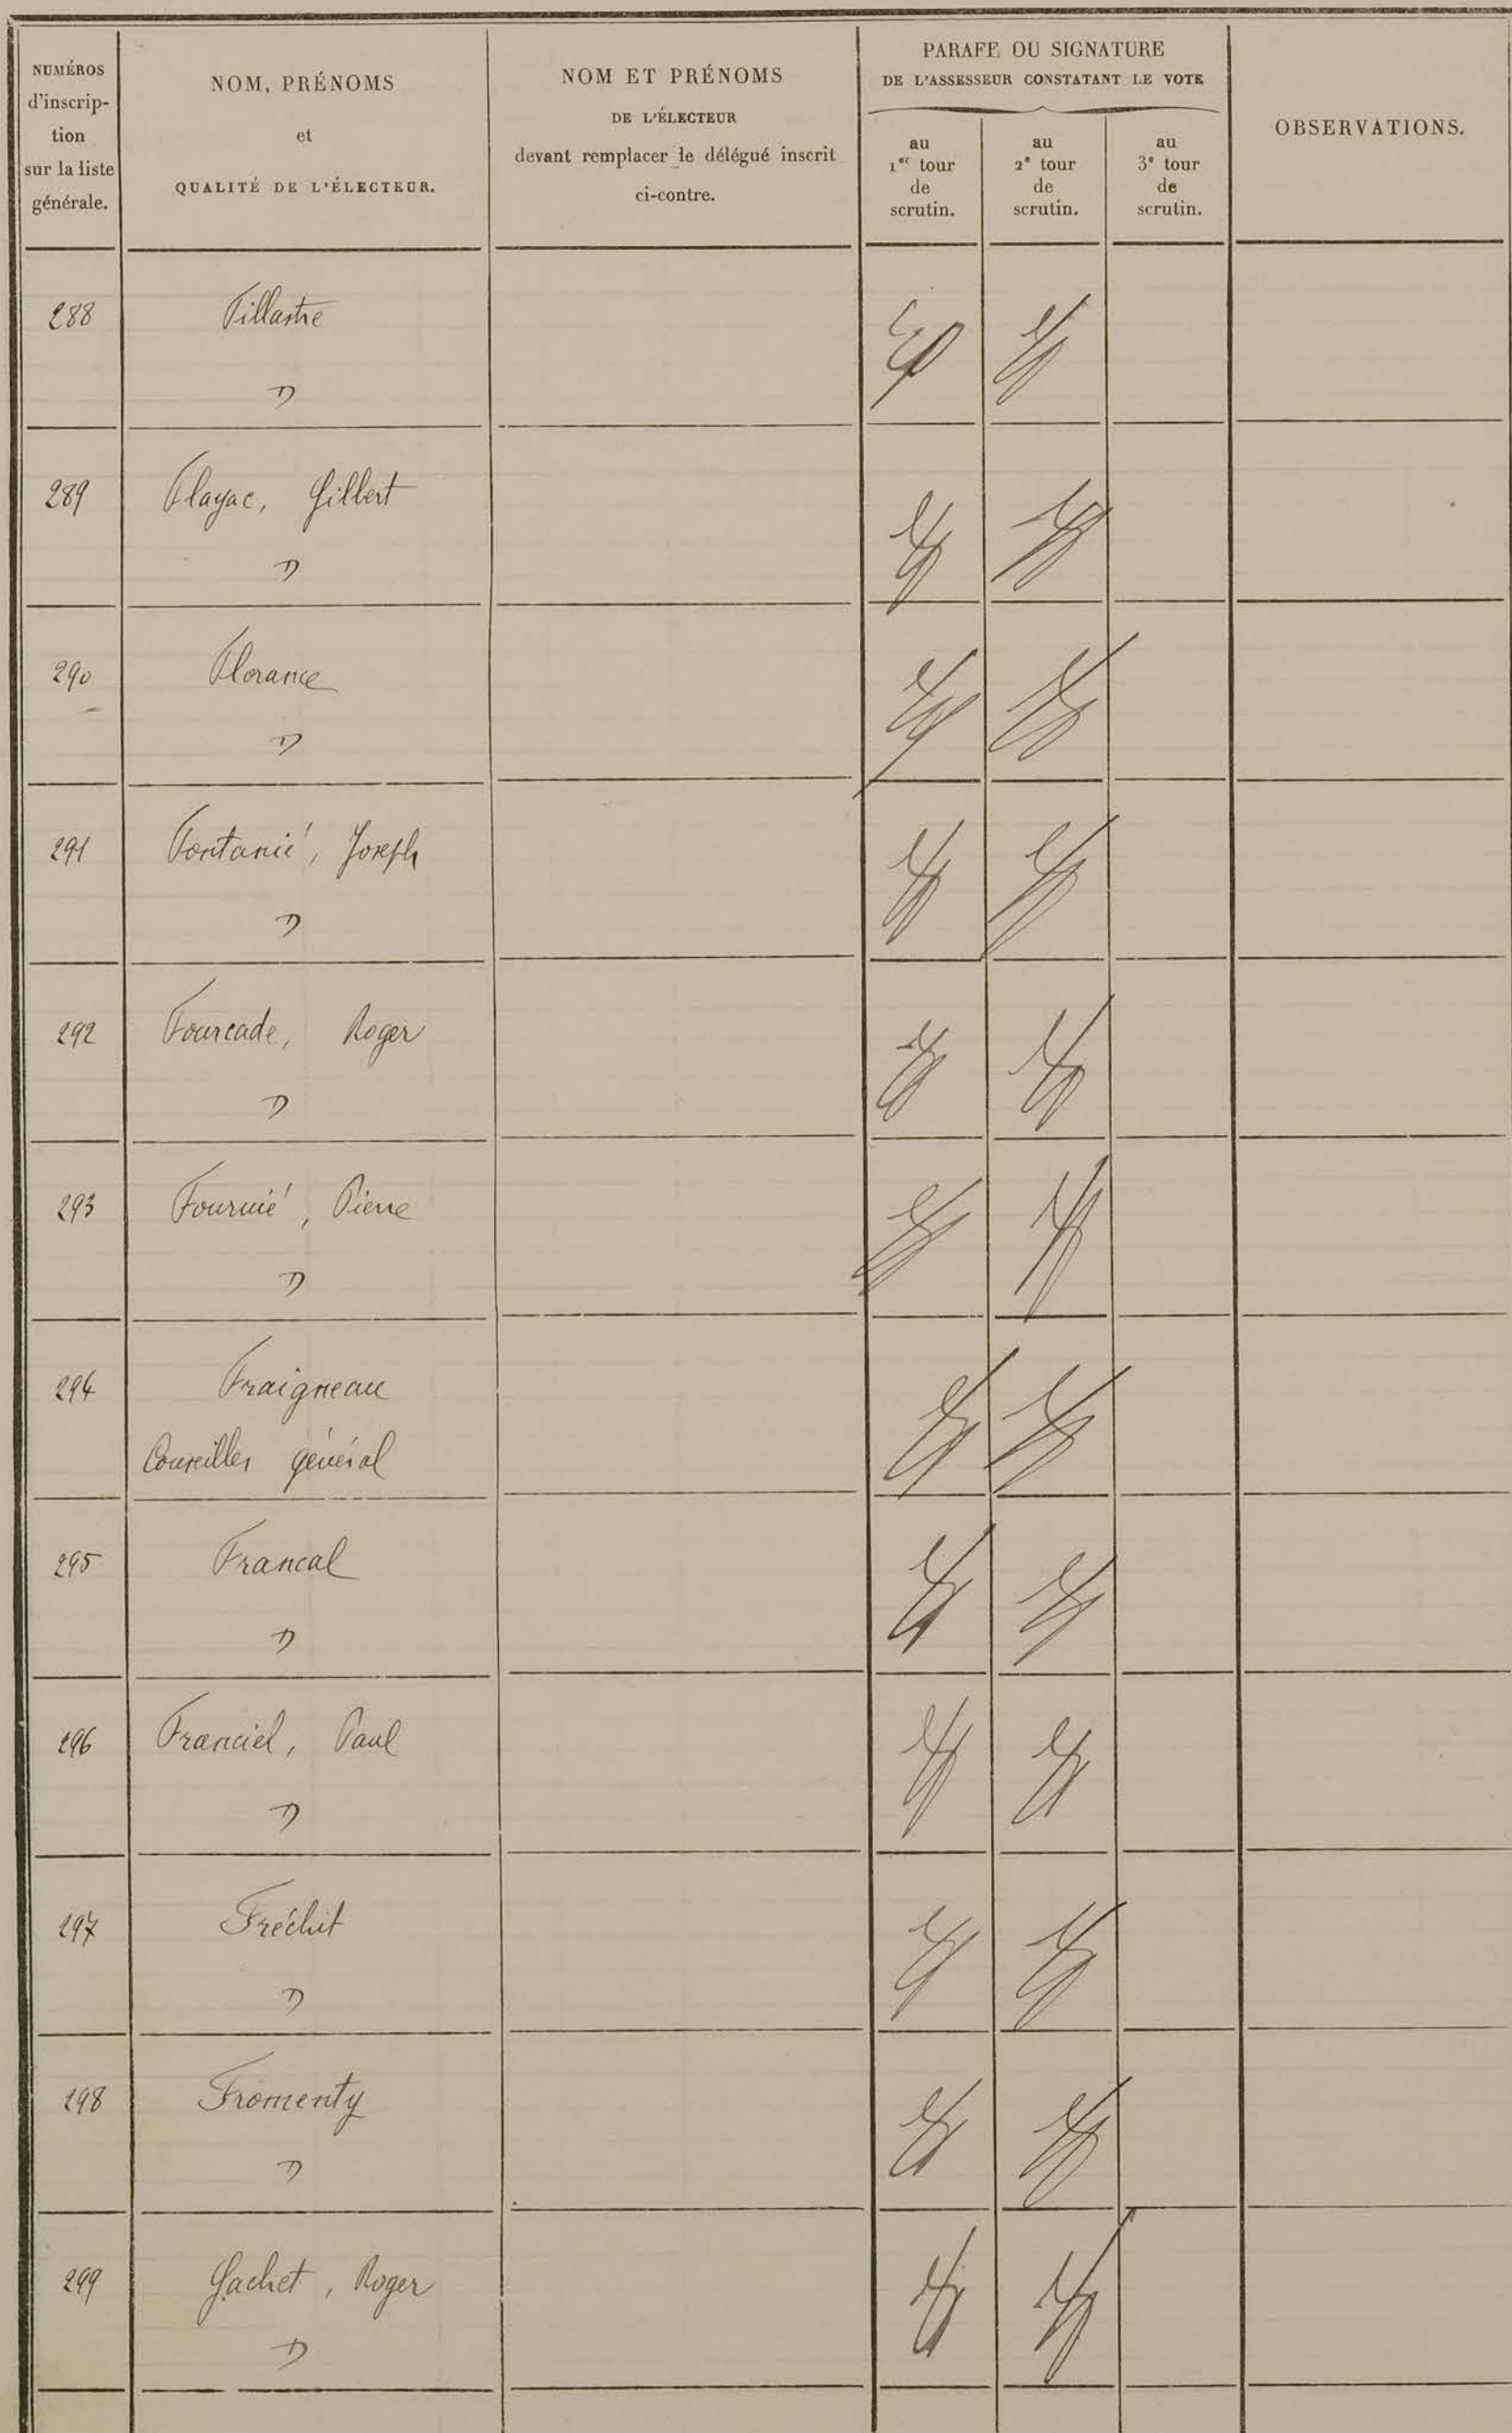 NUMÉROS
d'inscrip-
tion
sur la liste
générale.
NOM, PRÉNOMS
et
QUALITÉ DE L'ÉLECTEUR.
NOM ET PRÉNOMS
DE L'ÉLECTEUR
devant remplacer le délégué inscrit
ci-contre.
PARAFE OU SIGNATURE
DE L'ASSESSEUR CONSTATANT LE VOTE
au
1er tour
de
scrutin.
au
2e tour
de
scrutin.
au
3e tour
de
scrutin.
OBSERVATIONS.
288 Fillastre
D
289 Flayac, Gilbert
D
290 Florance
D
291 Fontanié, Joseph
D
292 Fourcade, Roger
D
293 Fournié, Pierre
D
294 Fraigneau
Conseiller général
295 Francal
D
296 Franciel, Paul
D
297 Fréchit
D
298 Fromenty
D
299 Gachet, Roger
D